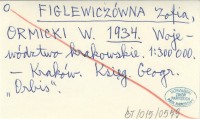 O.
FIGLEWICZÓWNA Zofia,
ORMICKI W. 1934. Woje-
wództwo krakowskie. 1:300 000.
— Kraków. Księg. Geogr.
„Orbis".